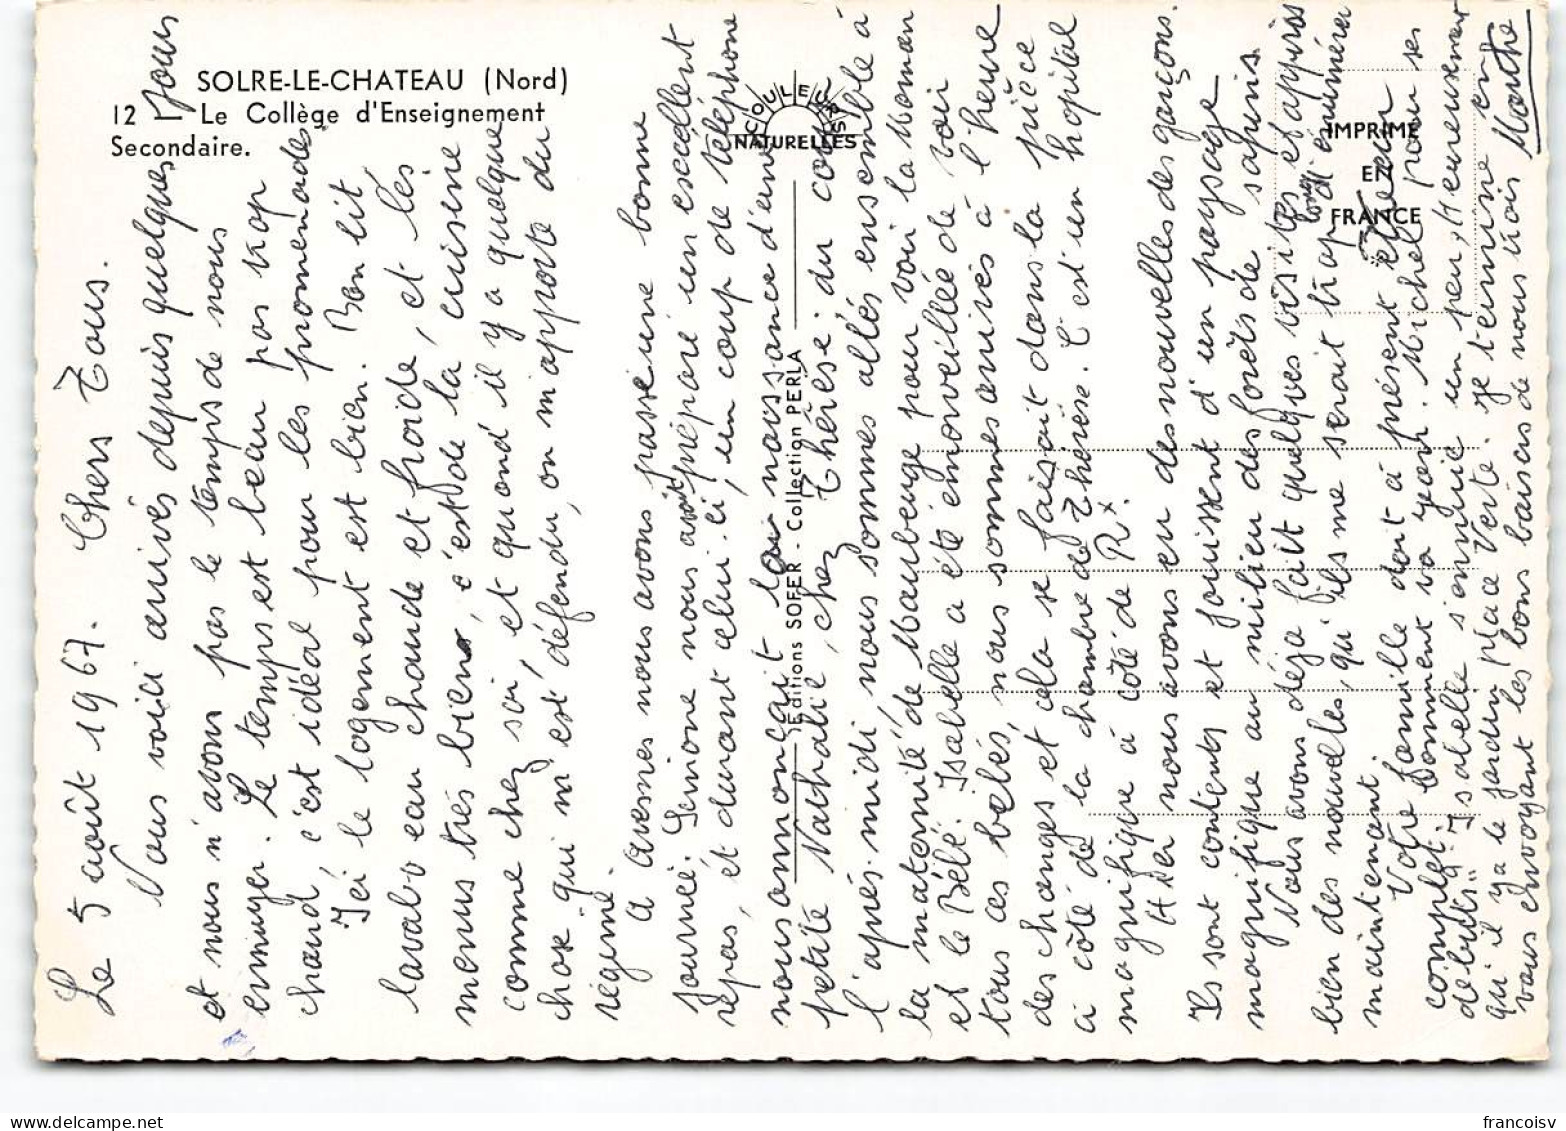 SOLRE-LE-CHATEAU (Nord)
12 — Le Collège d'Enseignement
Secondaire.
COULEURS
NATURELLES
Editions SOFER - Collection PERLA
IMPRIMÉ
EN
FRANCE
Le 5 août 1967. Chers Tous.
Nous voici arrivés depuis quelques jours
et nous n'avons pas le temps de nous
ennuyer. Le temps est beau pas trop
chaud, c'est idéal pour les promenades
Ici le logement est bien. Bon lit
lavabo eau chaude et froide, et les
menus très bien, c'est de la cuisine
comme chez soi, et quand il y a quelque
chose qui m'est défendu, on m'apporte du
régime.
A Avesnes nous avons passé une bonne
journée. Simone nous avait préparé un excellent
repas, et durant celui-ci, un coup de téléphone
nous annonçait la naissance d'une
petite Nathalie, chez Thérèse. du coup
l'après-midi, nous sommes allés ensemble à
la maternité de Maubeuge pour voir la Maman
et le Bébé. Isabelle a été émerveillée de voir
tous ces bébés, nous sommes arrivés à l'heure
des changes et cela se faisait dans la pièce
ci côté de la chambre de Thérèse. C'est un hôpital
magnifique à côté de Rx.
Hier nous avons eu des nouvelles des garçons.
Ils sont contents et jouissent d'un paysage
magnifique au milieu des forêts de sapins.
Nous avons déjà fait quelques visites et appris
bien des nouvelles, qu'ils me serait trop long d'énumérer
maintenant.
Votre famille doit à présent être au
complet. Comment va yaya. Michel pour ses
débuts. Isabelle s'ennuie un peu, Heureusement
qu'il y a le jardin place Verte. Je termine en
vous envoyant les bons baisers de nous trois Marthe
francoisv
delcampe.net